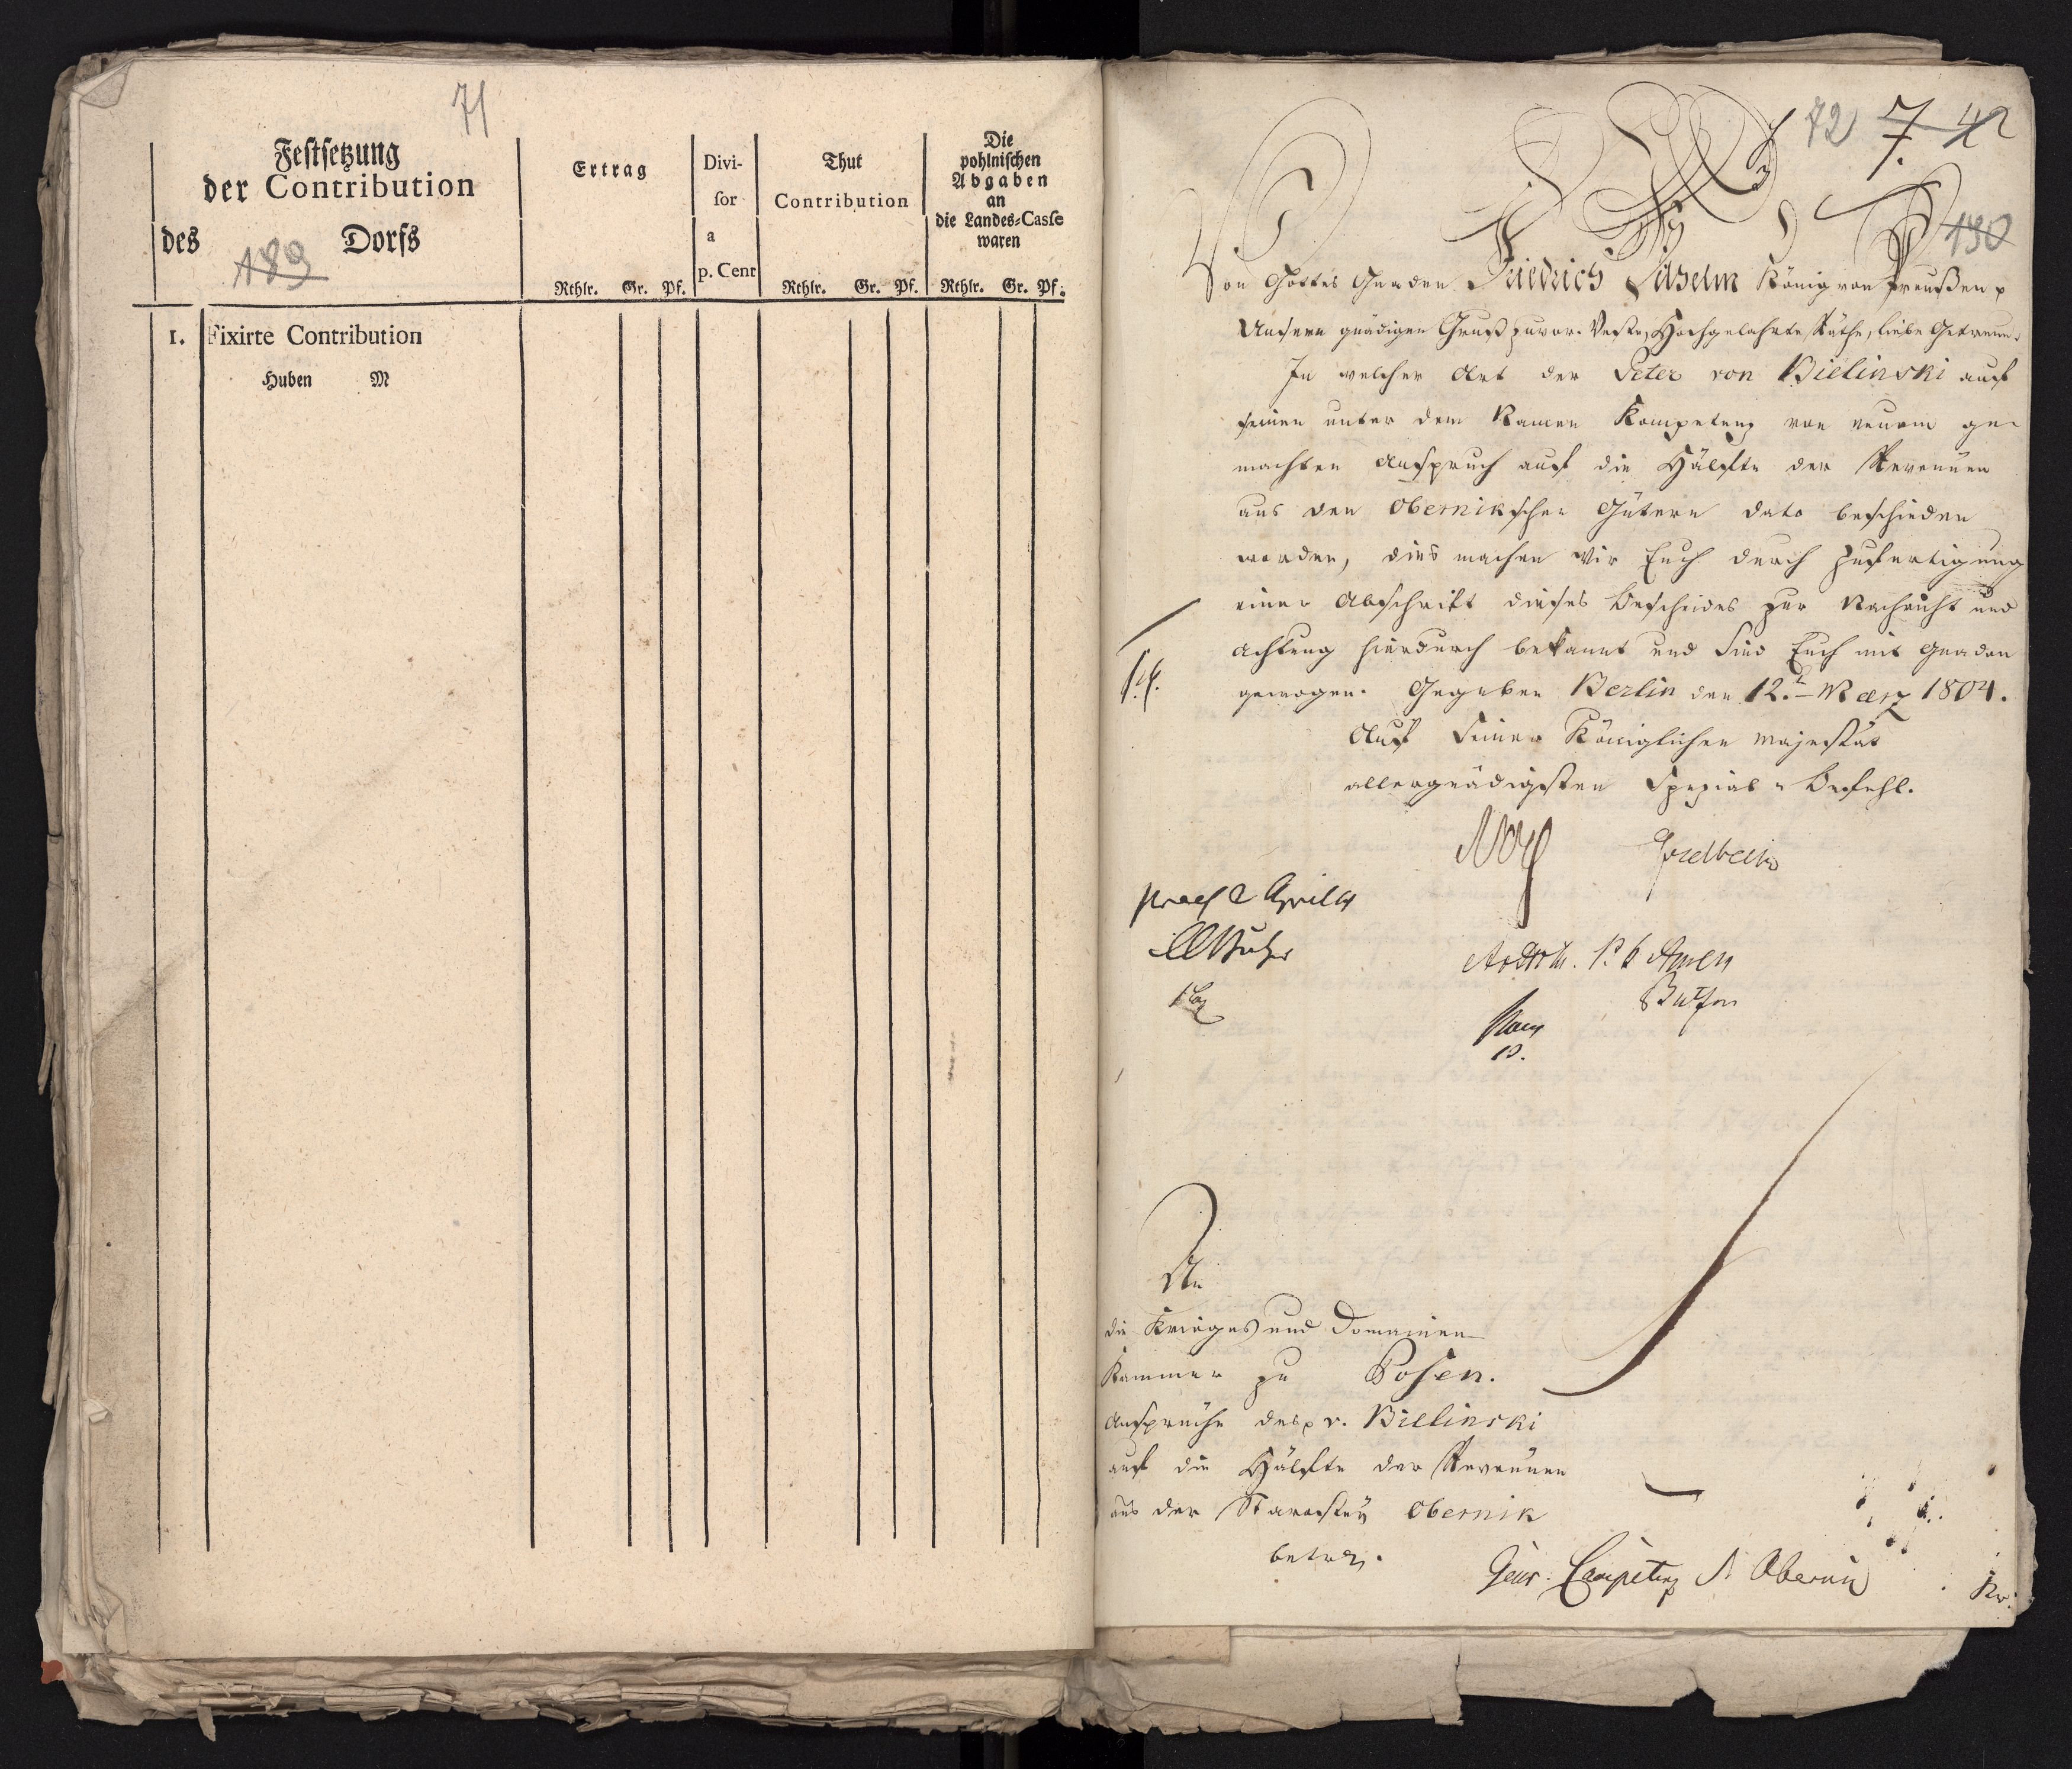 71
Festsetzung
der Contribution
des Dorfs
189
Ertrag
Rthlr. Gr. Pf.
Divi-
sor
a
p. Cent
Thut
Contribution
Rthlr. Gr. Pf.
Die
pohlnischen
Abgaben
an
die Landes-Casse
waren
Rthlr. Gr. Pf.
1. Fixirte Contribution
Huben M
72 7 42
190
Von Gottes Gnaden Friedrich Wilhelm König von Preußen p
Unsern gnädigen Gruß zuvor. Veste, Hochgelahrte Räthe, liebe Getreue.
In welcher Art der Peter von Bielinski auf
seinen unter dem Namen Kompetenz von neuem ge-
machten Anspruch auf die Hälfte der Revenüen
aus den Obernikschen Gütern dato beschieden
worden, dies machen Wir Euch durch Zufertigung
einer Abschrift dieses Bescheides zur Nachricht und
Achtung hierdurch bekannt und Sind Euch mit Gnaden
gewogen. Gegeben Berlin den 12.t März 1804.
Auf Seiner Königlichen Majestät
allergnädigsten Spezial-Befehl.
Voß Goldbeck
praes 2 April 4
An
die Krieges und Domainen
Kammer zu Posen.
Ansprüche des p v. Bielinski
auf die Hälfte der Revenüen
aus der Starostey Obernik
betr.
Competenz Obernik